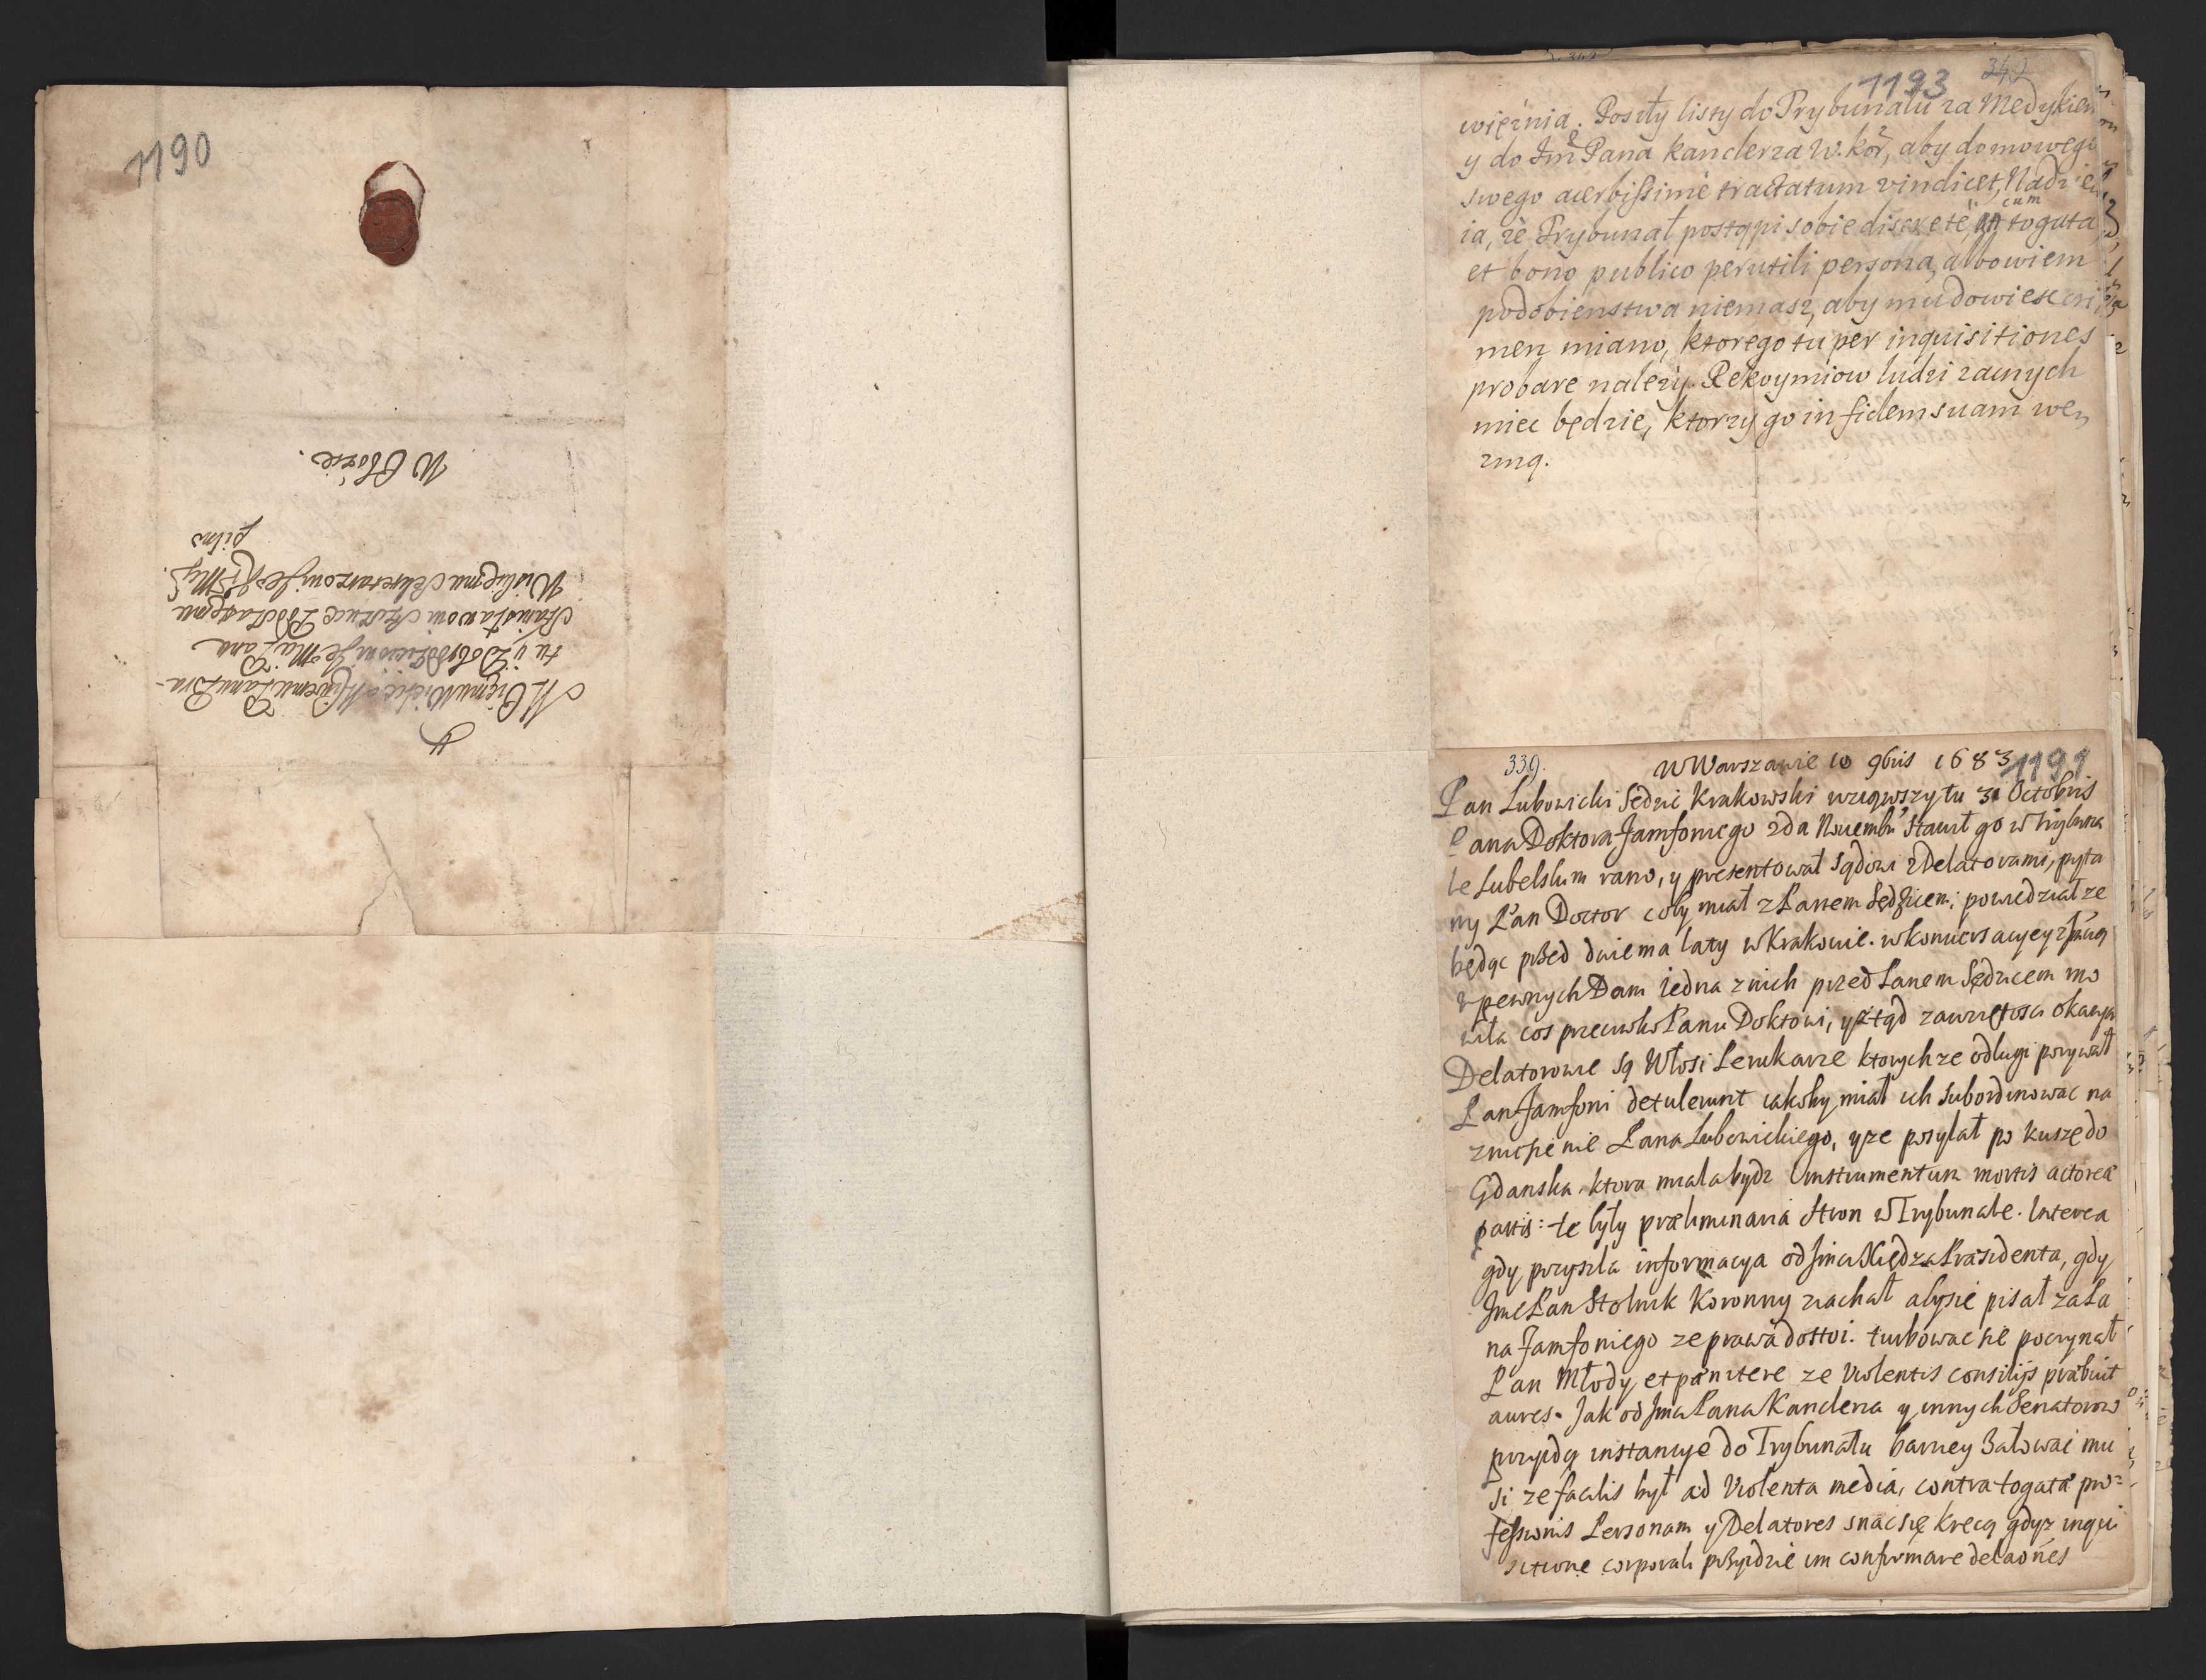 1190
W Obozie.
pilno
Wielkiemu Sekretarzowi Je° K. Mści
Stanisławowi Szczuce Podstarosciemu
tu y Dobrodzieiowi Je° Mści Panu
Mościwemu Panu Bra-
1193
342
więźnia. Poszły listy do Trybunału za Medykiem
y do Jm̃ Pana kanclerza W. kor̃, aby domowego
swego acerbissimè tractatum vindicet, Nadzie
ia, że Trybunał postąpi sobie discretè, cum togata
et bono publico perutili persona, albowiem
podobienstwa niemasz, aby mu dowiesc cri
men miano, ktorego tu per inquisitiones
probare należy. Rekoymiow ludzi zacnych
miec będzie, ktorzy go in fidem suam wez
zmą.
339.
W Warszawie 10 9bris 1683
1191
Pan Lubowicki Sędzic Krakowski wziąwszy tu 31 Octobris
Pana Doktora Jamfoniego 2da Novemb' stawił go w Trybuna
le Lubelskim rano, y presentował sądowi z Delatorami, pyta
ny Pan Doctor coby miał z Panem Sędzicem; powiedział ze
będąc przed dwiema laty w Krakowie. w konwersacyey
z pewnych Dam iedna z nich przed Panem Sędzicem mo
wiła cos przeciwko Panu Doktowi, y ztąd zawziętosci okazya
Delatorowie są Włosi Lerukarze ktorych ze o długi porywał
Pan Jamfoni detulerunt iakoby miał ich subordinowac na
zniesienie Pana Lubowickiego, y ze posyłał po kuszę do
Gdanska, ktora miała bydz instrumentum mortis actorea
partis: te były præliminaria stron w Trybunale. Interea
gdy przyszła informacya od Jmci Xiędza Præsidenta, gdy
Jmc Pan Stolnik Koronny ziachał aby sie pisał za Pa
na Jamfoniego ze prawa dostoi. turbowac sie poczynał
Pan Młody, et pænitere ze violentis consilijs præbuit
aures. Jak od Jmci Pana Kanclerza y innych Senatorow
przyidą instancye do Trybunału barziey żałowac mu
si ze facilis był ad violenta media, contra togatæ pro=
fessionis Personam y Delatores snac się kręcą gdyz inqui
sitione corporali przyidzie im confirmare delaões